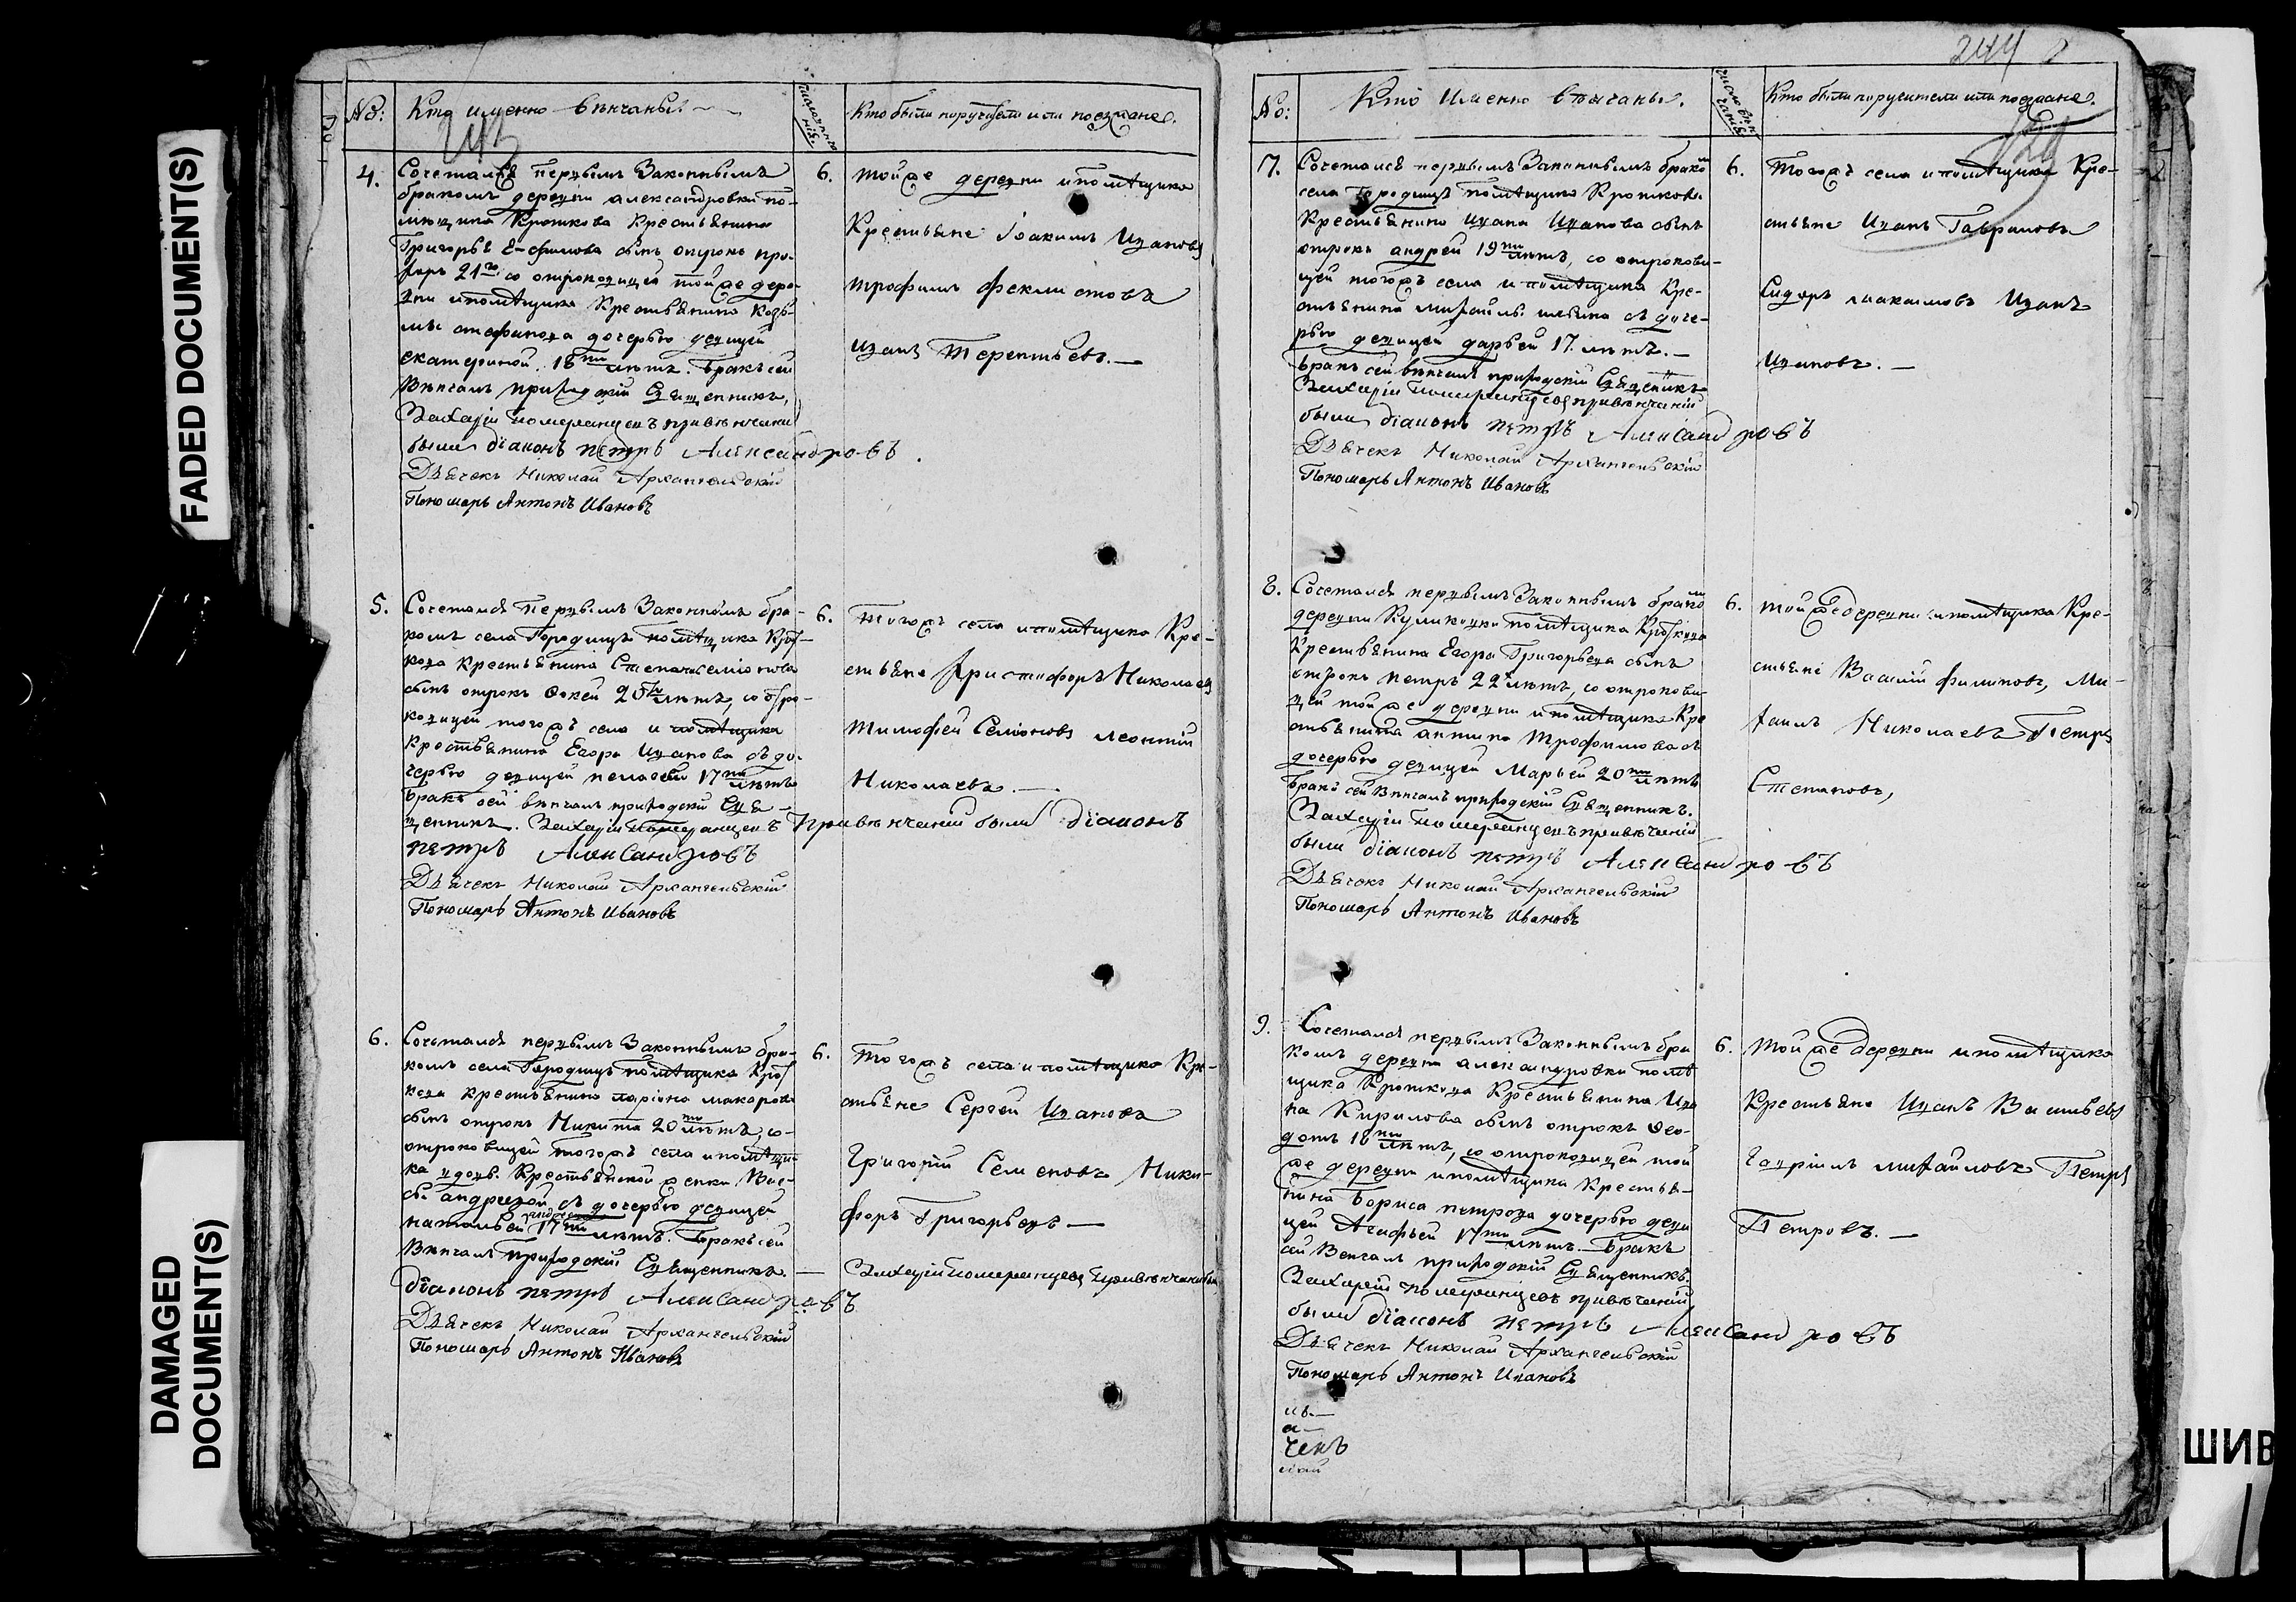 FADED DOCUMENT(S)
DAMAGED
DOCUMENT(S)
№:
Кто именно венчаны.
Кто были поручители или поезжане.
4.
Сочетался первымъ Законнымъ
бракомъ деревни александровки по-
мещика Кроткова Крестьянина
Григорья Ефимова сынъ отрокъ про-
хоръ 21го со отроковицей той же дере-
вни и помещика Крестьянина Козь-
мы стафинова дочерью девицей
екатериной 18ти летъ. бракъ сей
Венчалъ приходский Священникъ,
Захарiй Померанцевъ при венчании
были дiаконъ петръ Александровъ.
Дьячекъ Николай Архангельскiй
Пономарь Антонъ Ивановъ
6.
той же деревни и помещика
Крестьяне Iоакимъ Ивановъ
трофимъ феклистовъ
иванъ Терентьевъ.
5.
Сочетался Первымъ Законнымъ бра-
комъ села Городищъ помещика Крот-
кова Крестьянина Степана семiонова
сынъ отрокъ Фокей 20ти летъ, со отро-
ковицей тогожъ села и помещика
Крестьянина Егора Иванова съ до-
черью девицей пелагеей 17ти летъ
бракъ сей венчалъ приходский Свя-
щенникъ. Захарiй Померанцевъ При венчанiи были дiаконъ
петръ Александровъ
Дьячекъ Николай Архангельскiй
Пономарь Антонъ Ивановъ
6.
Тогожъ села и помещика Кре-
стьяне Христофоръ Николаевъ
Тимофей Семiоновъ леонтiй
Николаевъ.
6.
Сочетался первымъ Законнымъ бра-
комъ села Городищъ помещика Крот
кова крестьянина ларiона макарова
сынъ отрокъ Никита 20ти летъ, со-
отроковицей тогожъ села и помещи-
ка вдов. Крестьянской женки Вас-
сы андреевой съ дочерью девицей
натальей 17ти летъ. Бракъ сей
Венчалъ Приходскiй Священникъ. — Захарiй Померанцевъ При венчании были
дiаконъ петръ Александровъ
Дьячекъ Николай Архангельскiй
Пономарь Антонъ Ивановъ
6.
Тогожъ села и помещика Кре-
стьяне Сергей Ивановъ
Григорiй Семеновъ Ники-
форъ Григорьевъ —
244
№:
Кто Именно венчаны.
Кто были поручители или поезжане.
7.
Сочетался первымъ Законнымъ бракомъ
села Городищъ помещика Кроткова
Крестьянина Ивана Иванова сынъ
отрокъ андрей 19ти летъ, со отрокови-
цей тогожъ села и помещика Кре-
стьянина михайлы ильина съ доче-
рью девицей дарьей 17. летъ. —
бракъ сей венчалъ приходскiй Священникъ
Захарiй Померанцевъ при венчанiи
были дiаконъ петръ Александровъ
Дьячекъ Николай Архангельскiй
Пономарь Антонъ Ивановъ
6.
Тогожъ села и помещика Кре-
стьяне Иванъ Гавриловъ
Сидоръ максимовъ Иванъ
Ивановъ. —
8.
Сочетался первымъ Законнымъ бракомъ
деревни Куликовки помещика Кроткова
Крестьянина Егора Григорьева сынъ
отрокъ петръ 22х летъ, со отрокови-
цей той же деревни и помещика Кре
стьянина антипа Трофимова съ
дочерью девицей Марьей 20ти летъ
бракъ сей Венчалъ приходскiй Священникъ.
Захарiй Померанцевъ при венчанiи
были дiаконъ петръ Александровъ
Дьячекъ Николай Архангельскiй
Пономарь Антонъ Ивановъ
6.
той же деревни и помещика Кре-
стьяне Василiй филиповъ, Ми-
хаилъ Николаевъ Петръ
Степановъ,
9.
Сочетался первымъ Законнымъ бра
комъ деревни александровки поме
щика Кроткова Крестьянина Ива
на Кирилова сынъ отрокъ Фео-
дотъ 18ти летъ, со отроковицей той
же деревни и помещика Крестья-
нина Бориса петрова дочерью деви
цей Агафьей 17ти летъ. Бракъ
сей Венчалъ приходскiй Священникъ.
Захарiй Померанцевъ при венчанiи
были дiаконъ петръ Александровъ
Дьячекъ Николай Архангельскiй
Пономарь Антонъ Ивановъ
6.
той же деревни и помещика
Крестьяне Иванъ Васильевъ
Гаврiилъ михайловъ Петръ
Петровъ. —
чекъ
ШИВ